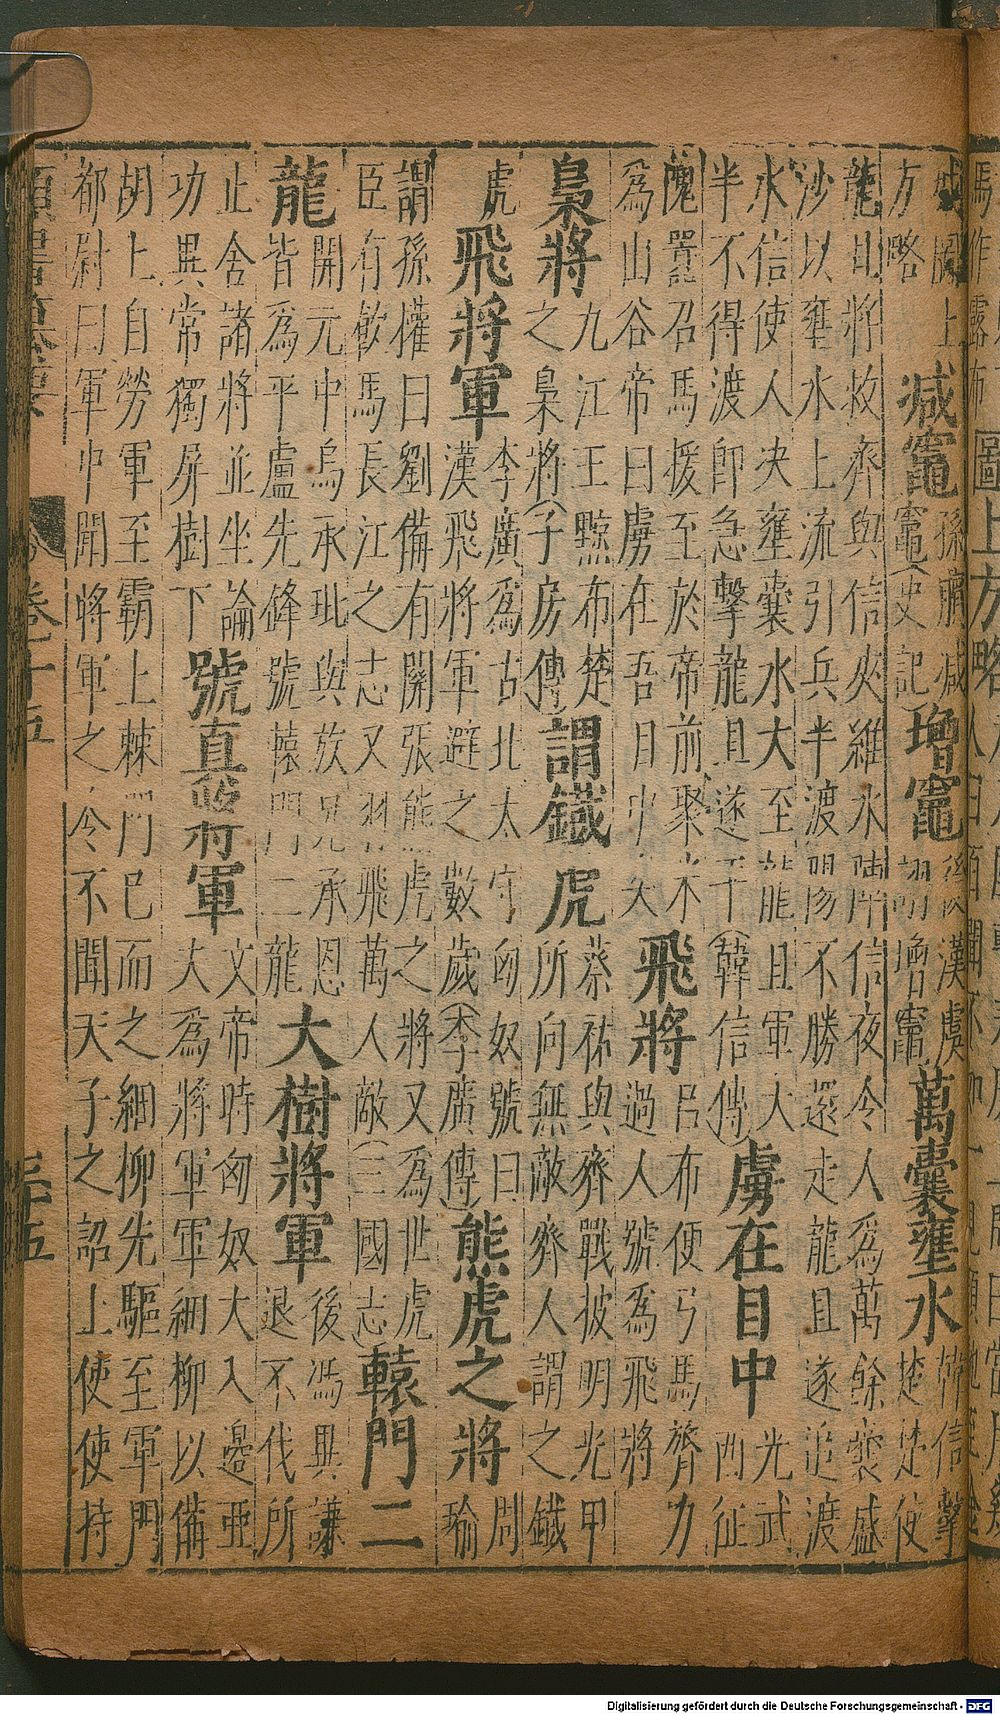 城圖上
方略
減竈
孫臏減
竈(史記)
增竈
後漢虞
詡增竈
萬囊壅水
韓信擊
楚楚使
龍且將救齊與信夾濰水陣信夜令人爲萬餘囊盛
沙以壅水上流引兵半渡陽不勝還走龍且遂追渡
水信使人决壅囊水大至龍且軍大
半不得渡卽急擊龍且遂平(韓信傳)
虜在目中
光武
西征
隗囂召馬援至於帝前聚米
為山谷帝曰虜在吾目中矣
飛將
呂布便弓馬膂力
過人號爲飛將
梟將
九江王黥布楚
之梟將(子房傳)
謂鐡虎
蔡祐與齊戰披明光甲
所向無敵齊人謂之鐡
虎
飛將軍
李廣爲古北太守匈奴號曰
漢飛將軍避之數歲(李廣傳)
熊虎之將
周
瑜
謂孫權曰劉備有關張熊虎之將又爲世虎
臣有歃馬長江之志又羽飛萬人敵(三國志)
轅門二
龍
開元中烏承玭與族兄承恩
皆爲平盧先鋒號轅門二龍
大樹將軍
後馮異謙
退不伐所
止舍諸將並坐論
功異常獨屏樹下
號真將軍
文帝時匈奴大入邊亞
大爲將軍軍細柳以備
胡上自勞軍至霸上棘門已而之細柳先驅至軍門
都尉曰軍中聞將軍之令不聞天子之詔上使使持
卷十五
三五
圖上方略
Digitalisierung gefördert durch die Deutsche Forschungsgemeinschaft - DFG